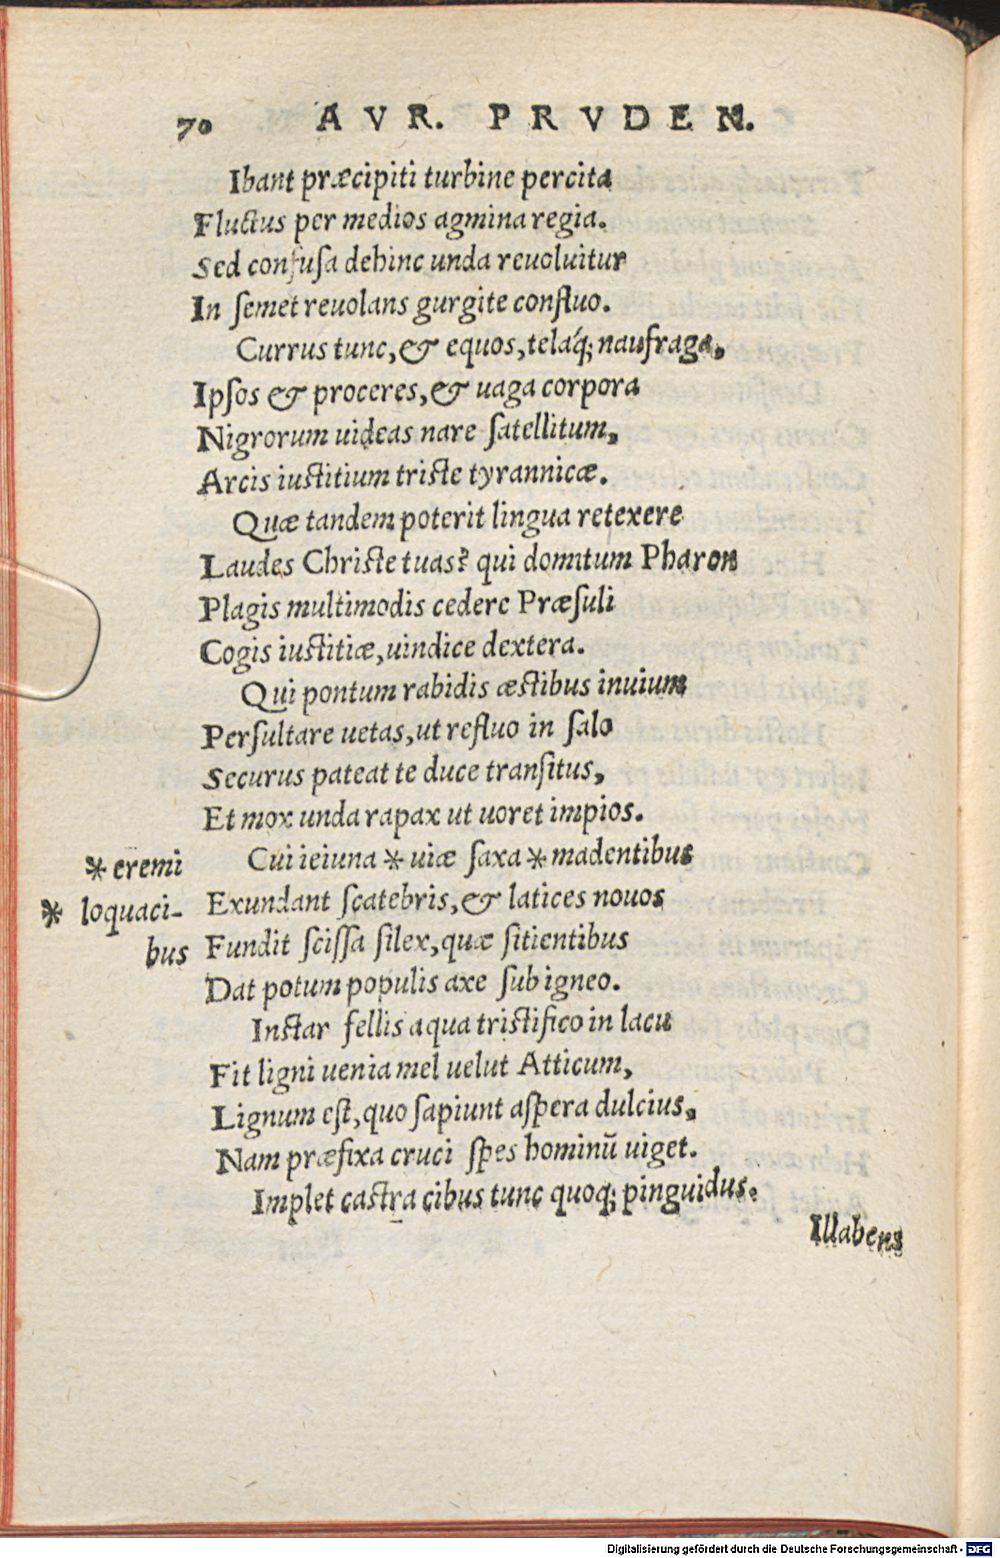 70 AVR. PRVDEN.
Ibant præcipiti turbine percita
Fluctus per medios agmina regia.
Sed confusa dehinc unda reuoluitur
In semet reuolans gurgite confluo.
Currus tunc, & equos, telaq́; naufraga,
Ipsos & proceres, & uaga corpora
Nigrorum uideas nare satellitum,
Arcis iustitium triste tyrannicæ.
Quæ tandem poterit lingua retexere
Laudes Christe tuas? qui domitum Pharon
Plagis multimodis cedere Præsuli
Cogis iustitiæ, uindice dextera.
Qui pontum rabidis æstibus inuium
Persultare uetas, ut refluo in salo
Securus pateat te duce transitus,
Et mox unda rapax ut uoret impios.
* eremi Cui ieiuna * uiæ saxa * madentibus
* loquaci- Exundant scatebris, & latices nouos
bus Fundit scissa silex, quæ sitientibus
Dat potum populis axe sub igneo.
Instar fellis aqua tristifico in lacu
Fit ligni uenia mel uelut Atticum,
Lignum est, quo sapiunt aspera dulcius,
Nam præfixa cruci spes hominū uiget.
Implet castra cibus tunc quoq; pinguidus.
Illabens
Digitalisierung gefördert durch die Deutsche Forschungsgemeinschaft - DFG